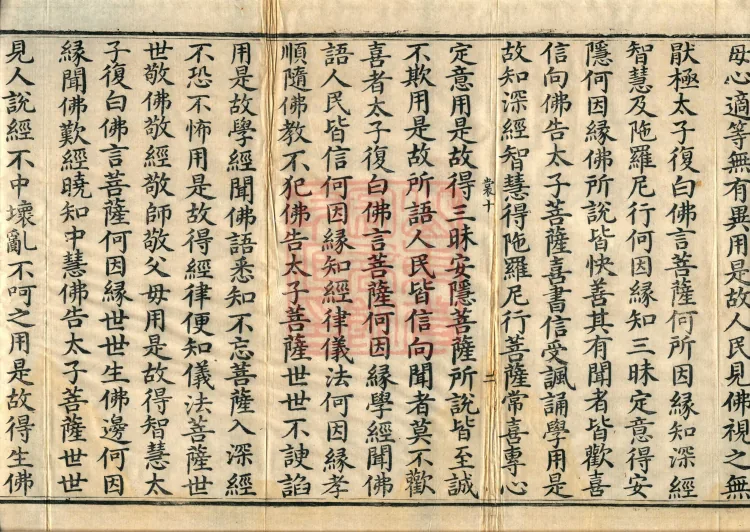 毋心適等無有異用是故人民見佛視之無
猒極太子復白佛言菩薩何所因緣知深經
智慧及陁羅尼行何因緣知三昧定意得安
隱何因緣佛所說皆快善其有聞者皆歡喜
信向佛告太子菩薩喜書信受諷誦學用是
故知深經智慧得陁羅尼行菩薩常喜專心
裳十 二
定意用是故得三昧安隱菩薩所說皆至誠
不欺用是故所語人民皆信向聞者莫不歡
喜者太子復白佛言菩薩何因緣學經聞佛
語人民皆信何因緣知經律儀法何因緣孝
順隨佛教不犯佛告太子菩薩世世不諛諂
用是故學經聞佛語悉知不忘菩薩入深經
不恐不怖用是故得經律便知儀法菩薩世
世敬佛敬經敬師敬父毋用是故得智慧太
子復白佛言菩薩何因緣世世生佛邊何因
緣聞佛歎經曉知中慧佛告太子菩薩世世
見人說經不中壞亂不呵之用是故得生佛